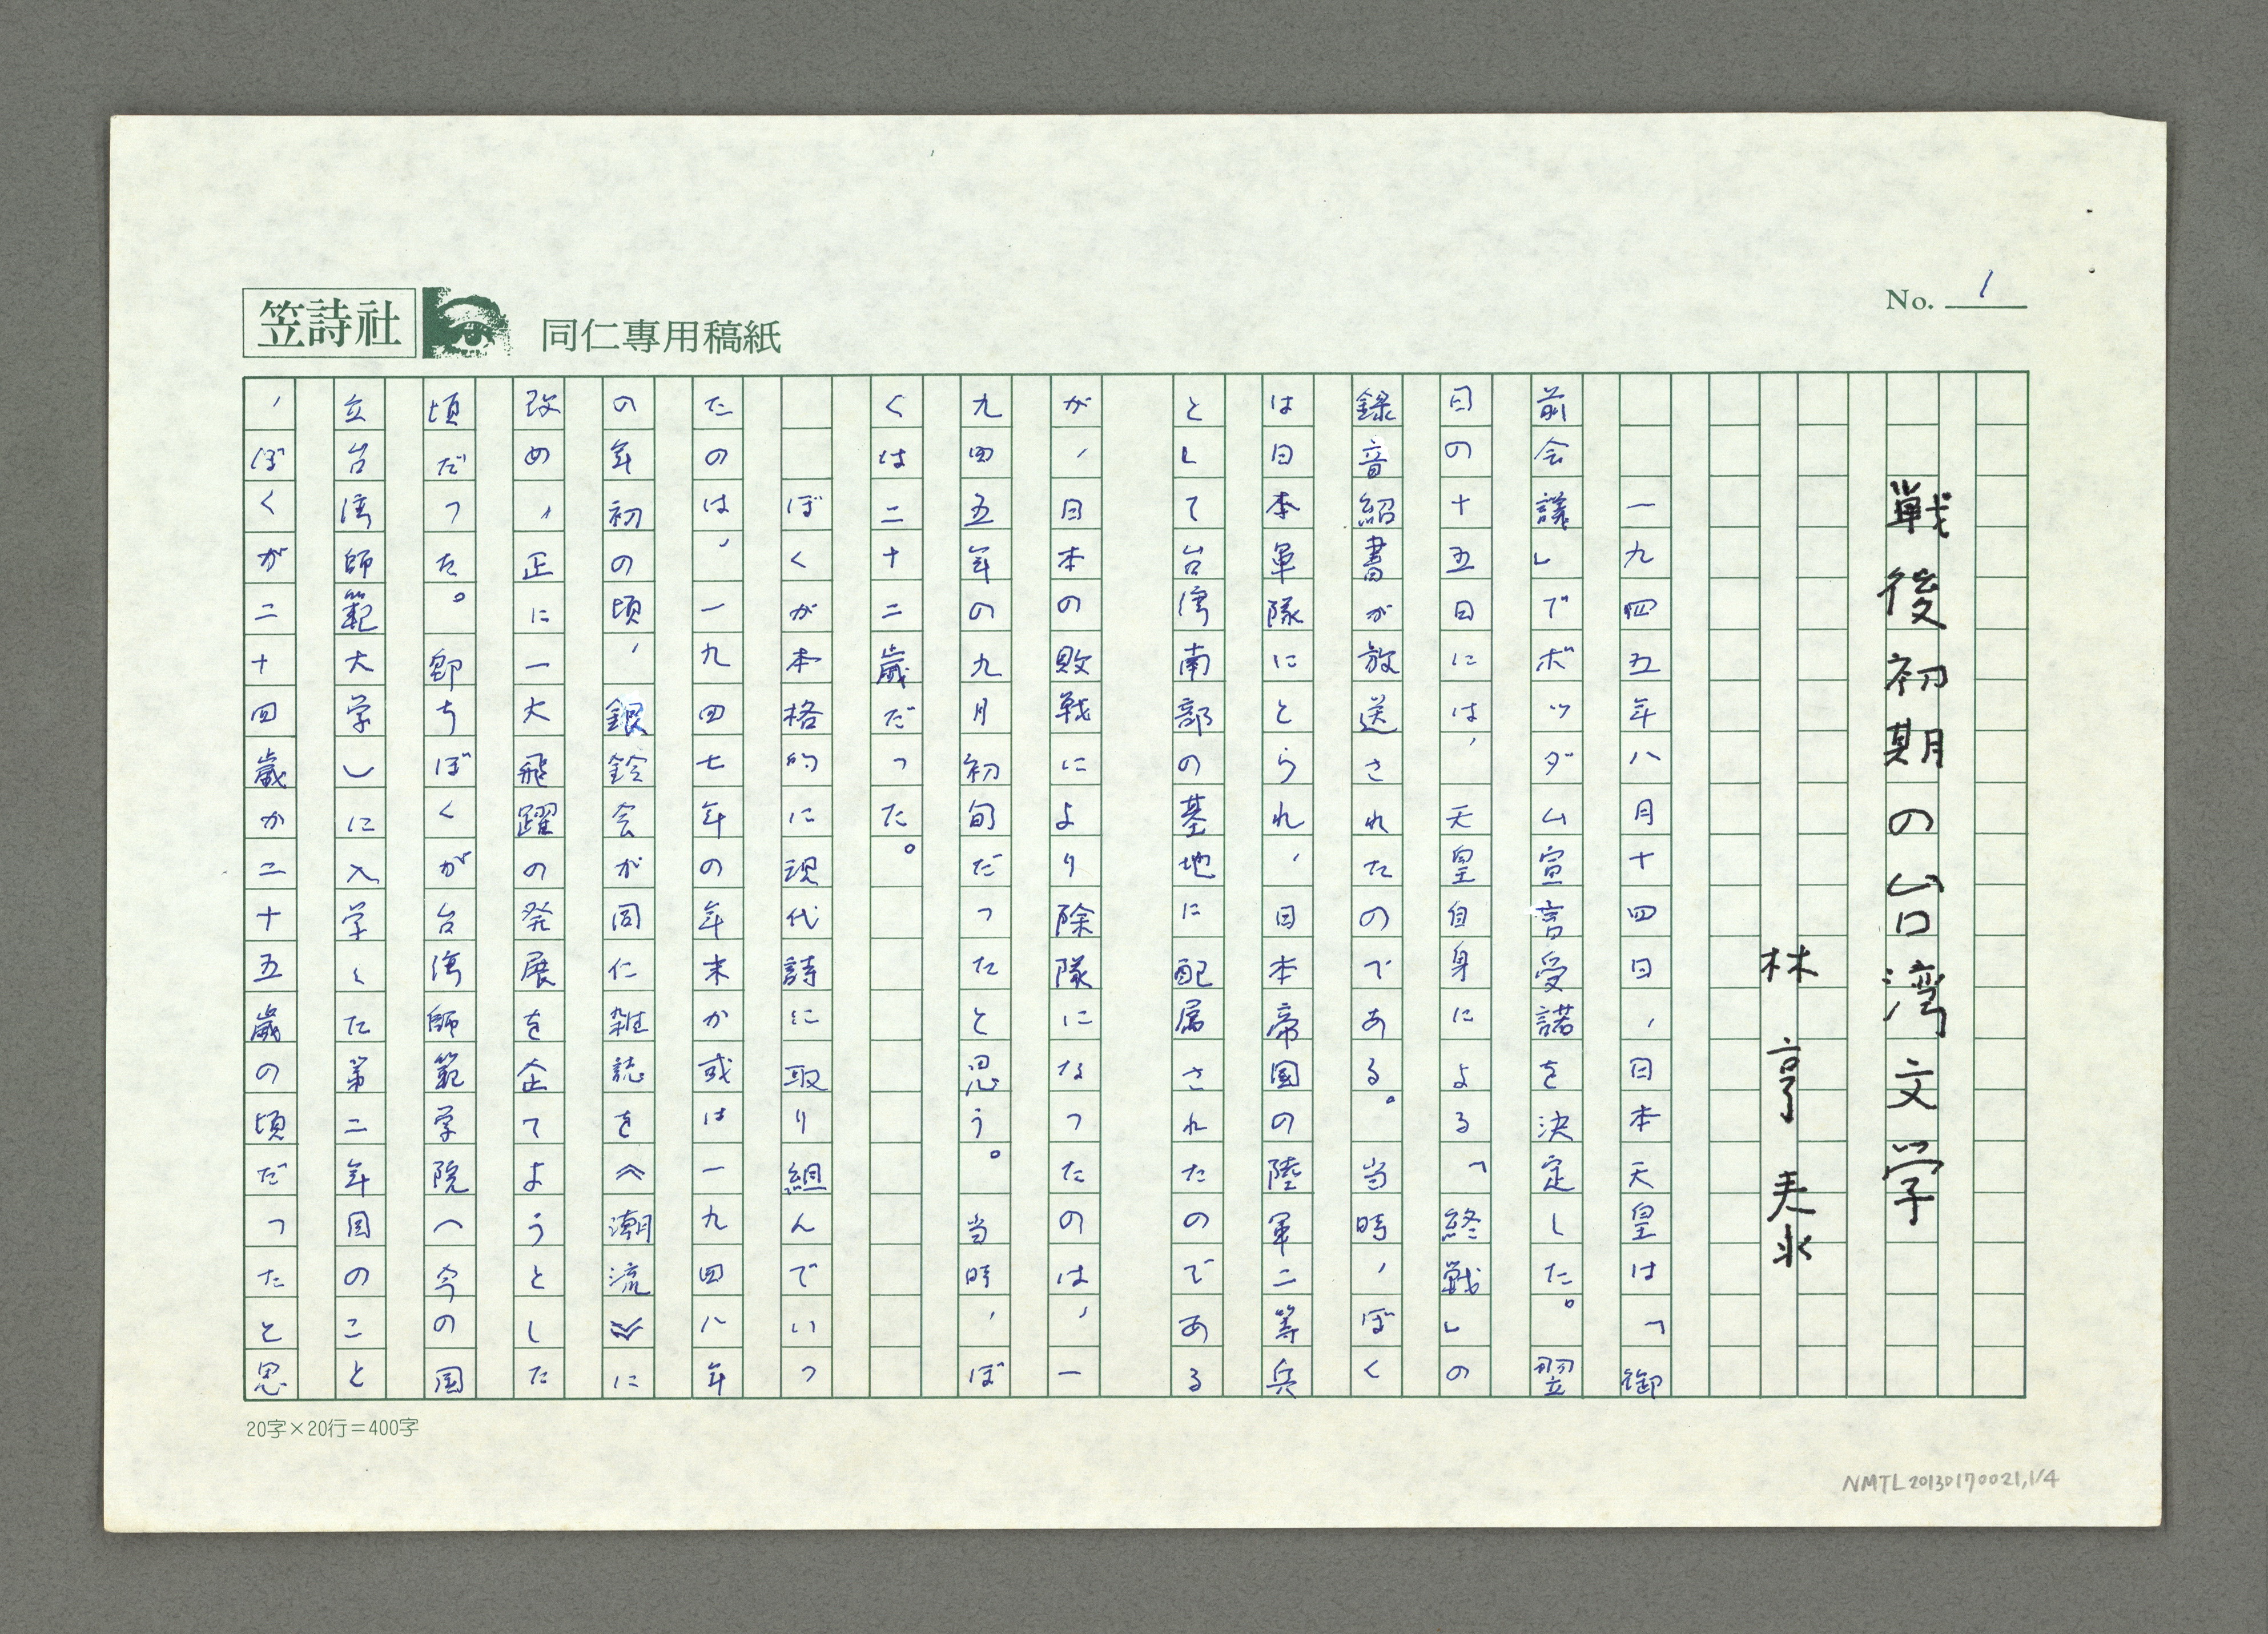 No. 1
笠詩社 同仁專用稿紙
戦後初期の台湾文学
林亨泰
一九四五年八月十四日，日本天皇は「御
前会議」でボツダム宣言受諾を決定した。翌
日の十五日には，天皇自身による「終戦」の
録音紹書が放送されたのである。当時，ぼく
は日本軍隊にとられ，日本帝国の陸軍二等兵
として台湾南部の基地に配属されたのである
が，日本の敗戦により除隊になったのは，一
九四五年の九月初旬だったと思う。当時，ぼ
くは二十二歳だった。
ぼくが本格的に現代詩に取り組んでいっ
たのは，一九四七年の年末か或は一九四八年
の年初の頃，銀鈴会が同仁雑誌を《潮流》に
改め，正に一大飛躍の発展を企てようとした
頃だった。即ちぼくが台湾師範学院（今の国
立台湾師範大学）に入学した第二年目のこと
，ぼくが二十四歳か二十五歳の頃だったと思
20字×20行=400字
NMTL20130170021,1/4